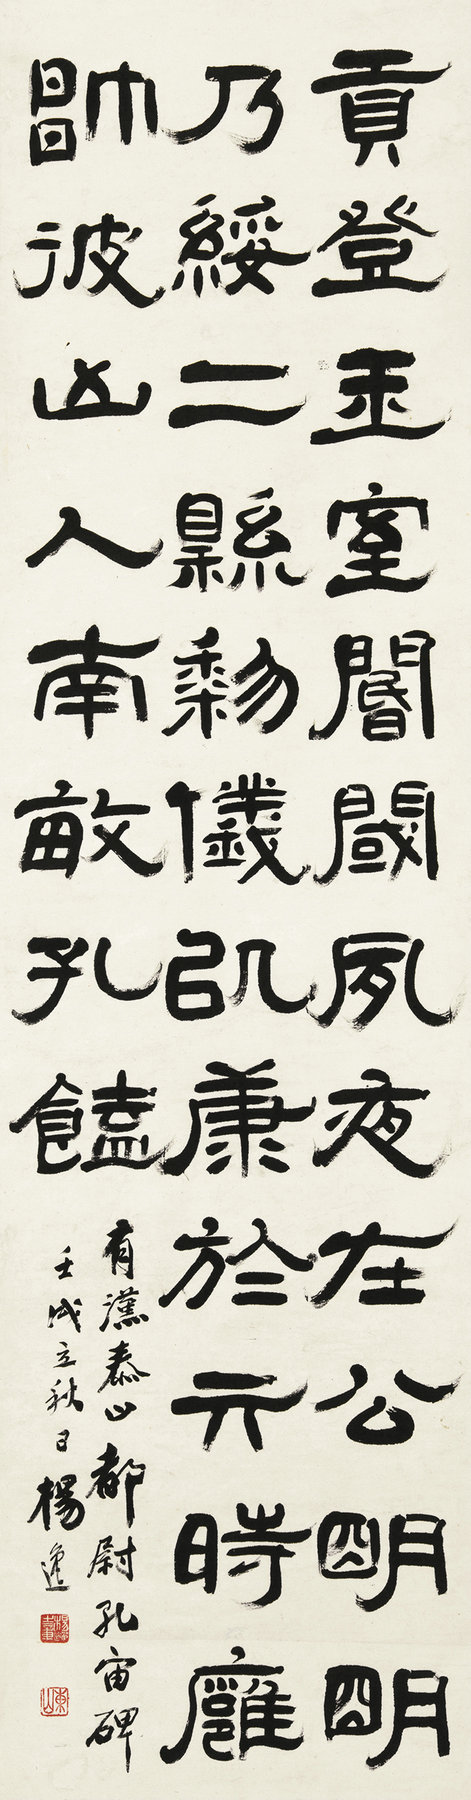 貢登王室閽閾夙夜在公明明
乃綏二縣黎儀以康於亓時廱
帥彼凶人南畝孔饁
有漢泰山都尉孔宙碑
壬戌立秋日楊逸
東山